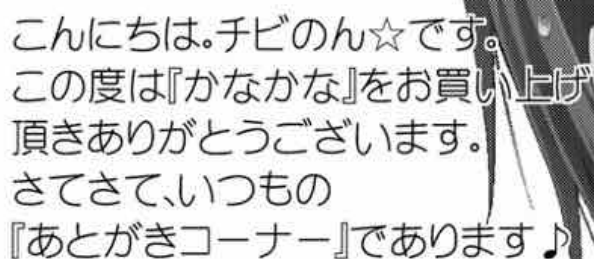 こんにちは。チビのん☆です。
この度は『かなかな』をお買い上げ
頂きありがとうございます。
さてさて、いつもの
『あとがきコーナー』であります♪